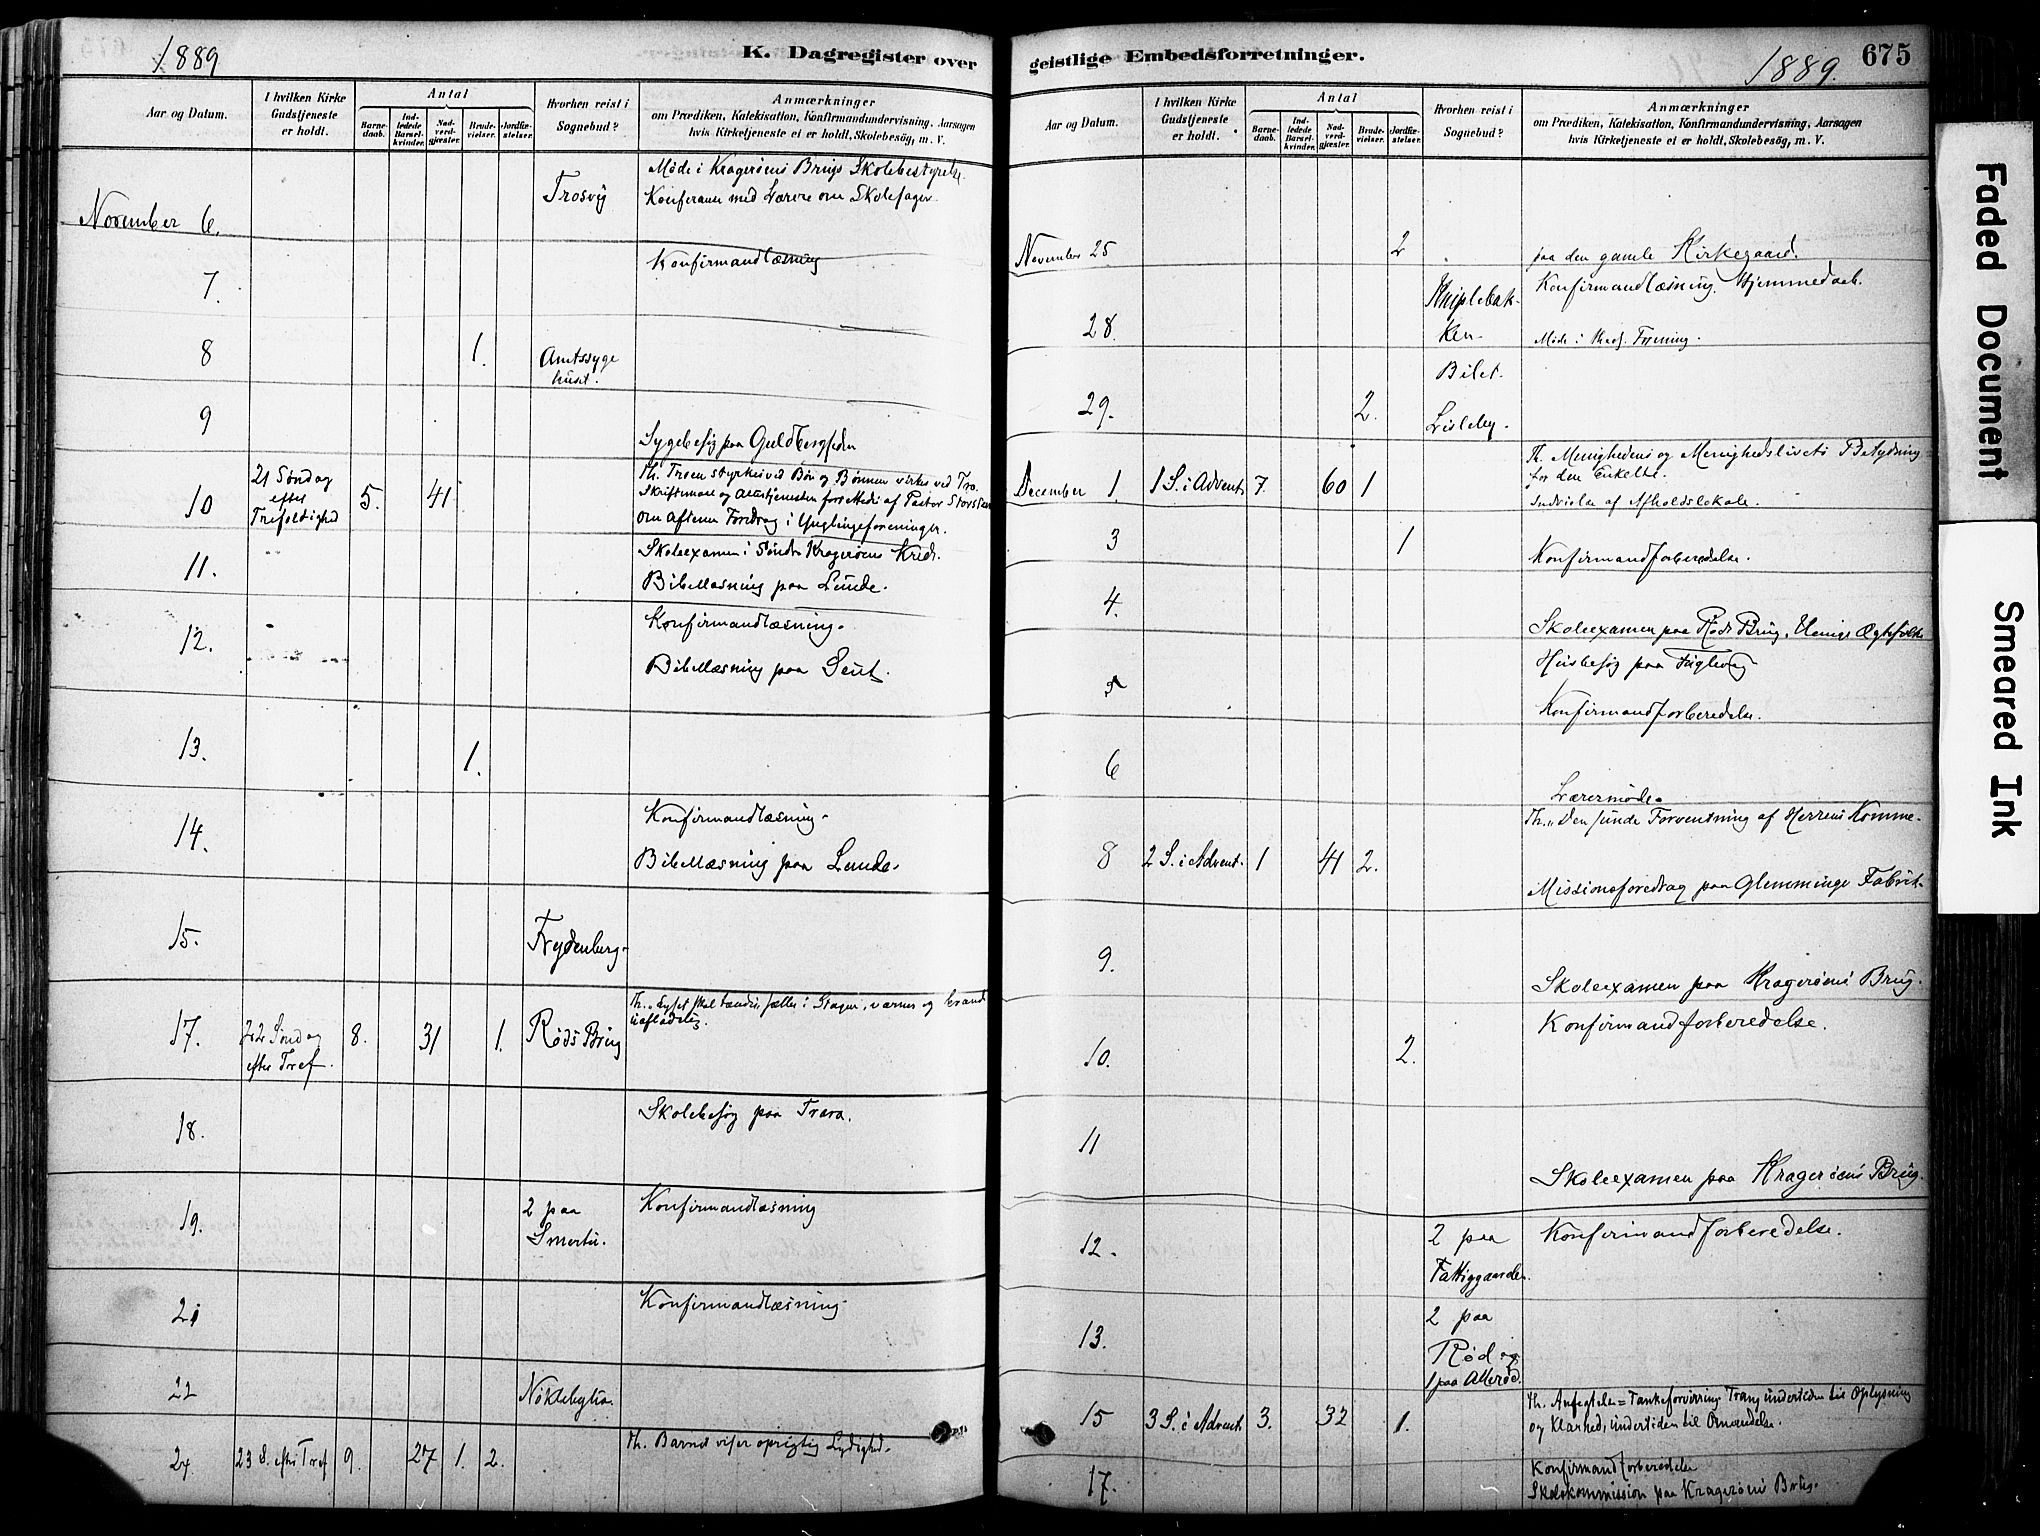 1889
K. Dagregister over
Aar og Datum.
I hvilken Kirke
Gudstjeneste
er holdt.
Antal
Barne-
daab.
Ind-
ledede
Barsel-
kvinder.
Nad-
verd-
gjæster.
Brude-
vielser.
Jordfæ-
stelser.
Hvorhen reist i
Sognebud?
Anmærkninger
om Prædiken, Katekisation, Konfirmandundervisning, Aarsagen
hvis Kirketjeneste ei er holdt, Skolebesög, m. V.
November 6.
Trosvig
Møde i Kragerøens Brugs Skolebestyrelse.
Konferance med Lærere om Skolesager.
7.
Konfirmandlæsning
8
1.
Amtssyge
huset.
9
Sygebesøg paa Guldbergseden
10
21 Søndag
efter
Trefoldighed
5.
41
Th. Troen styrkes ved Bøn og Bønnen virker ved Tro.
Skriftemaal og Altertjenesten forrettedes af Pastor Storsten
om Aftenen Foredrag i Ynglingeforeningen.
11.
Skoleexamen i Søndre Kragerøens Kreds.
Bibellæsning paa Lunde.
12.
Konfirmandlæsning.
Bibellæsning paa Seut.
13.
1.
14.
Konfirmandlæsning.
Bibellæsning paa Lunde.
15.
Frydenberg.
17.
22 Søndag
efter Tref.
8.
31
1.
Røds Brug
Th. "Lyset skal tændes, sættes i Stagen, varmes og brænde
uafladelig.
18.
Skolebesøg paa Trara.
19.
2 paa
Smertu.
Konfirmandlæsning
21
Konfirmandlæsning
22
Nøkleby
24
23 S. efter Tref
9.
27
1.
2.
Th. Barnet viser oprigtig Lydighed.
geistlige Embedsforretninger.
1889.
675
Aar og Datum.
I hvilken Kirke
Gudstjeneste
er holdt.
Antal
Barne-
daab.
Ind-
ledede
Barsel-
kvinder.
Nad-
verd-
gjæster.
Brude-
vielser.
Jordfæ-
stelser.
Hvorhen reist i
Sognebud?
Anmærkninger
om Prædiken, Katekisation, Konfirmandundervisning, Aarsagen
hvis Kirketjeneste ei er holdt, Skolebesög, m. V.
November 25
2
paa den gamle Kirkegaard.
28.
Kniplebak-
ken.
Konfirmandlæsning. Hjemmedaab.
Møde i
29.
2.
Bilet.
Lisleby.
December 1.
1 S. i Advent
7.
60
1
Th. Menighedens og Menighedslivets Betydning
for den Enkelte.
Indvielse af Afholdslokale.
3
1
Konfirmandforberedelse.
4.
Skoleexamen paa Røds Brug, Uenige Ægtefolk
5
Husbesøg paa Fuglevig
Konfirmandforberedelse.
6
Lærermøde.
8
2 S. i Advent.
1
41
2.
Th. "Den sunde Forventning af Herrens Komme.
Missionsforedrag paa Glemminge Fabrik.
9.
Skoleexamen paa Kragerøens Brug.
10.
2.
Konfirmandforberedelse.
11
Skoleexamen paa Kragerøens Brug.
12.
2 paa
Fattiggaarden.
Konfirmandforberedelse.
13.
2 paa
Rød og
1 paa Allerød.
15
3 S. i Advent
3.
32
1.
Th. Anfegtelse = Tankeforvirring Trang undertiden til Oplysning
og Klarhed, undertiden til Omvendelse.
17.
Konfirmandforberedelse
Skolekommission paa Kragerøens Brug.
Faded Document
Smeared Ink